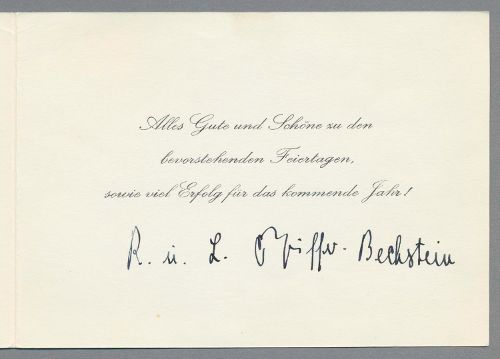 Alles Gute und Schöne zu den
bevorstehenden Feiertagen,
sowie viel Erfolg für das kommende Jahr!
R. u. L. Bechstein